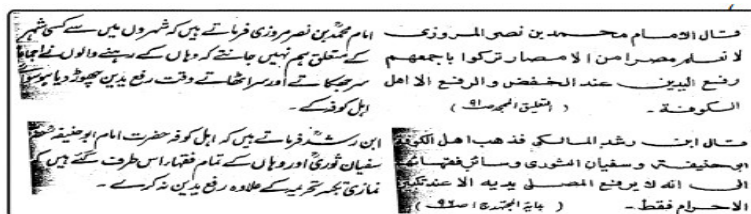 قال الامام محمد بن نصر المروزی
لا نعلم مصرا من الامصار ترکوا باجمعهم
رفع الیدین عند الخفض والرفع الا اهل
الکوفة۔ (التعلیق الممجد ص ۹۱)
امام محمد بن نصر مروزی فرماتے ہیں کہ شہروں میں سے کسی شہر
کے متعلق ہم نہیں جانتے کہ وہاں کے رہنے والوں نے اجماعاً
سر جھکاتے اور سر اٹھاتے وقت رفع یدین چھوڑ دیا ہو سوائے
اہل کوفہ کے۔
قال ابن رشد المالکی فذهب اهل الکوفة
ابی حنیفة و سفیان الثوری وسائر فقهائهم
الی انه لا یرفع المصلی یدیه الا عند تکبیر
الاحرام فقط۔ (بدایة المجتہد ج ۱ ص ۹۶)
ابن رشد فرماتے ہیں کہ اہل کوفہ حضرت امام ابو حنیفہ
سفیان ثوری اور وہاں کے تمام فقہاء اس طرف گئے ہیں کہ
نمازی تکبیر تحریمہ کے علاوہ رفع یدین نہ کرے۔